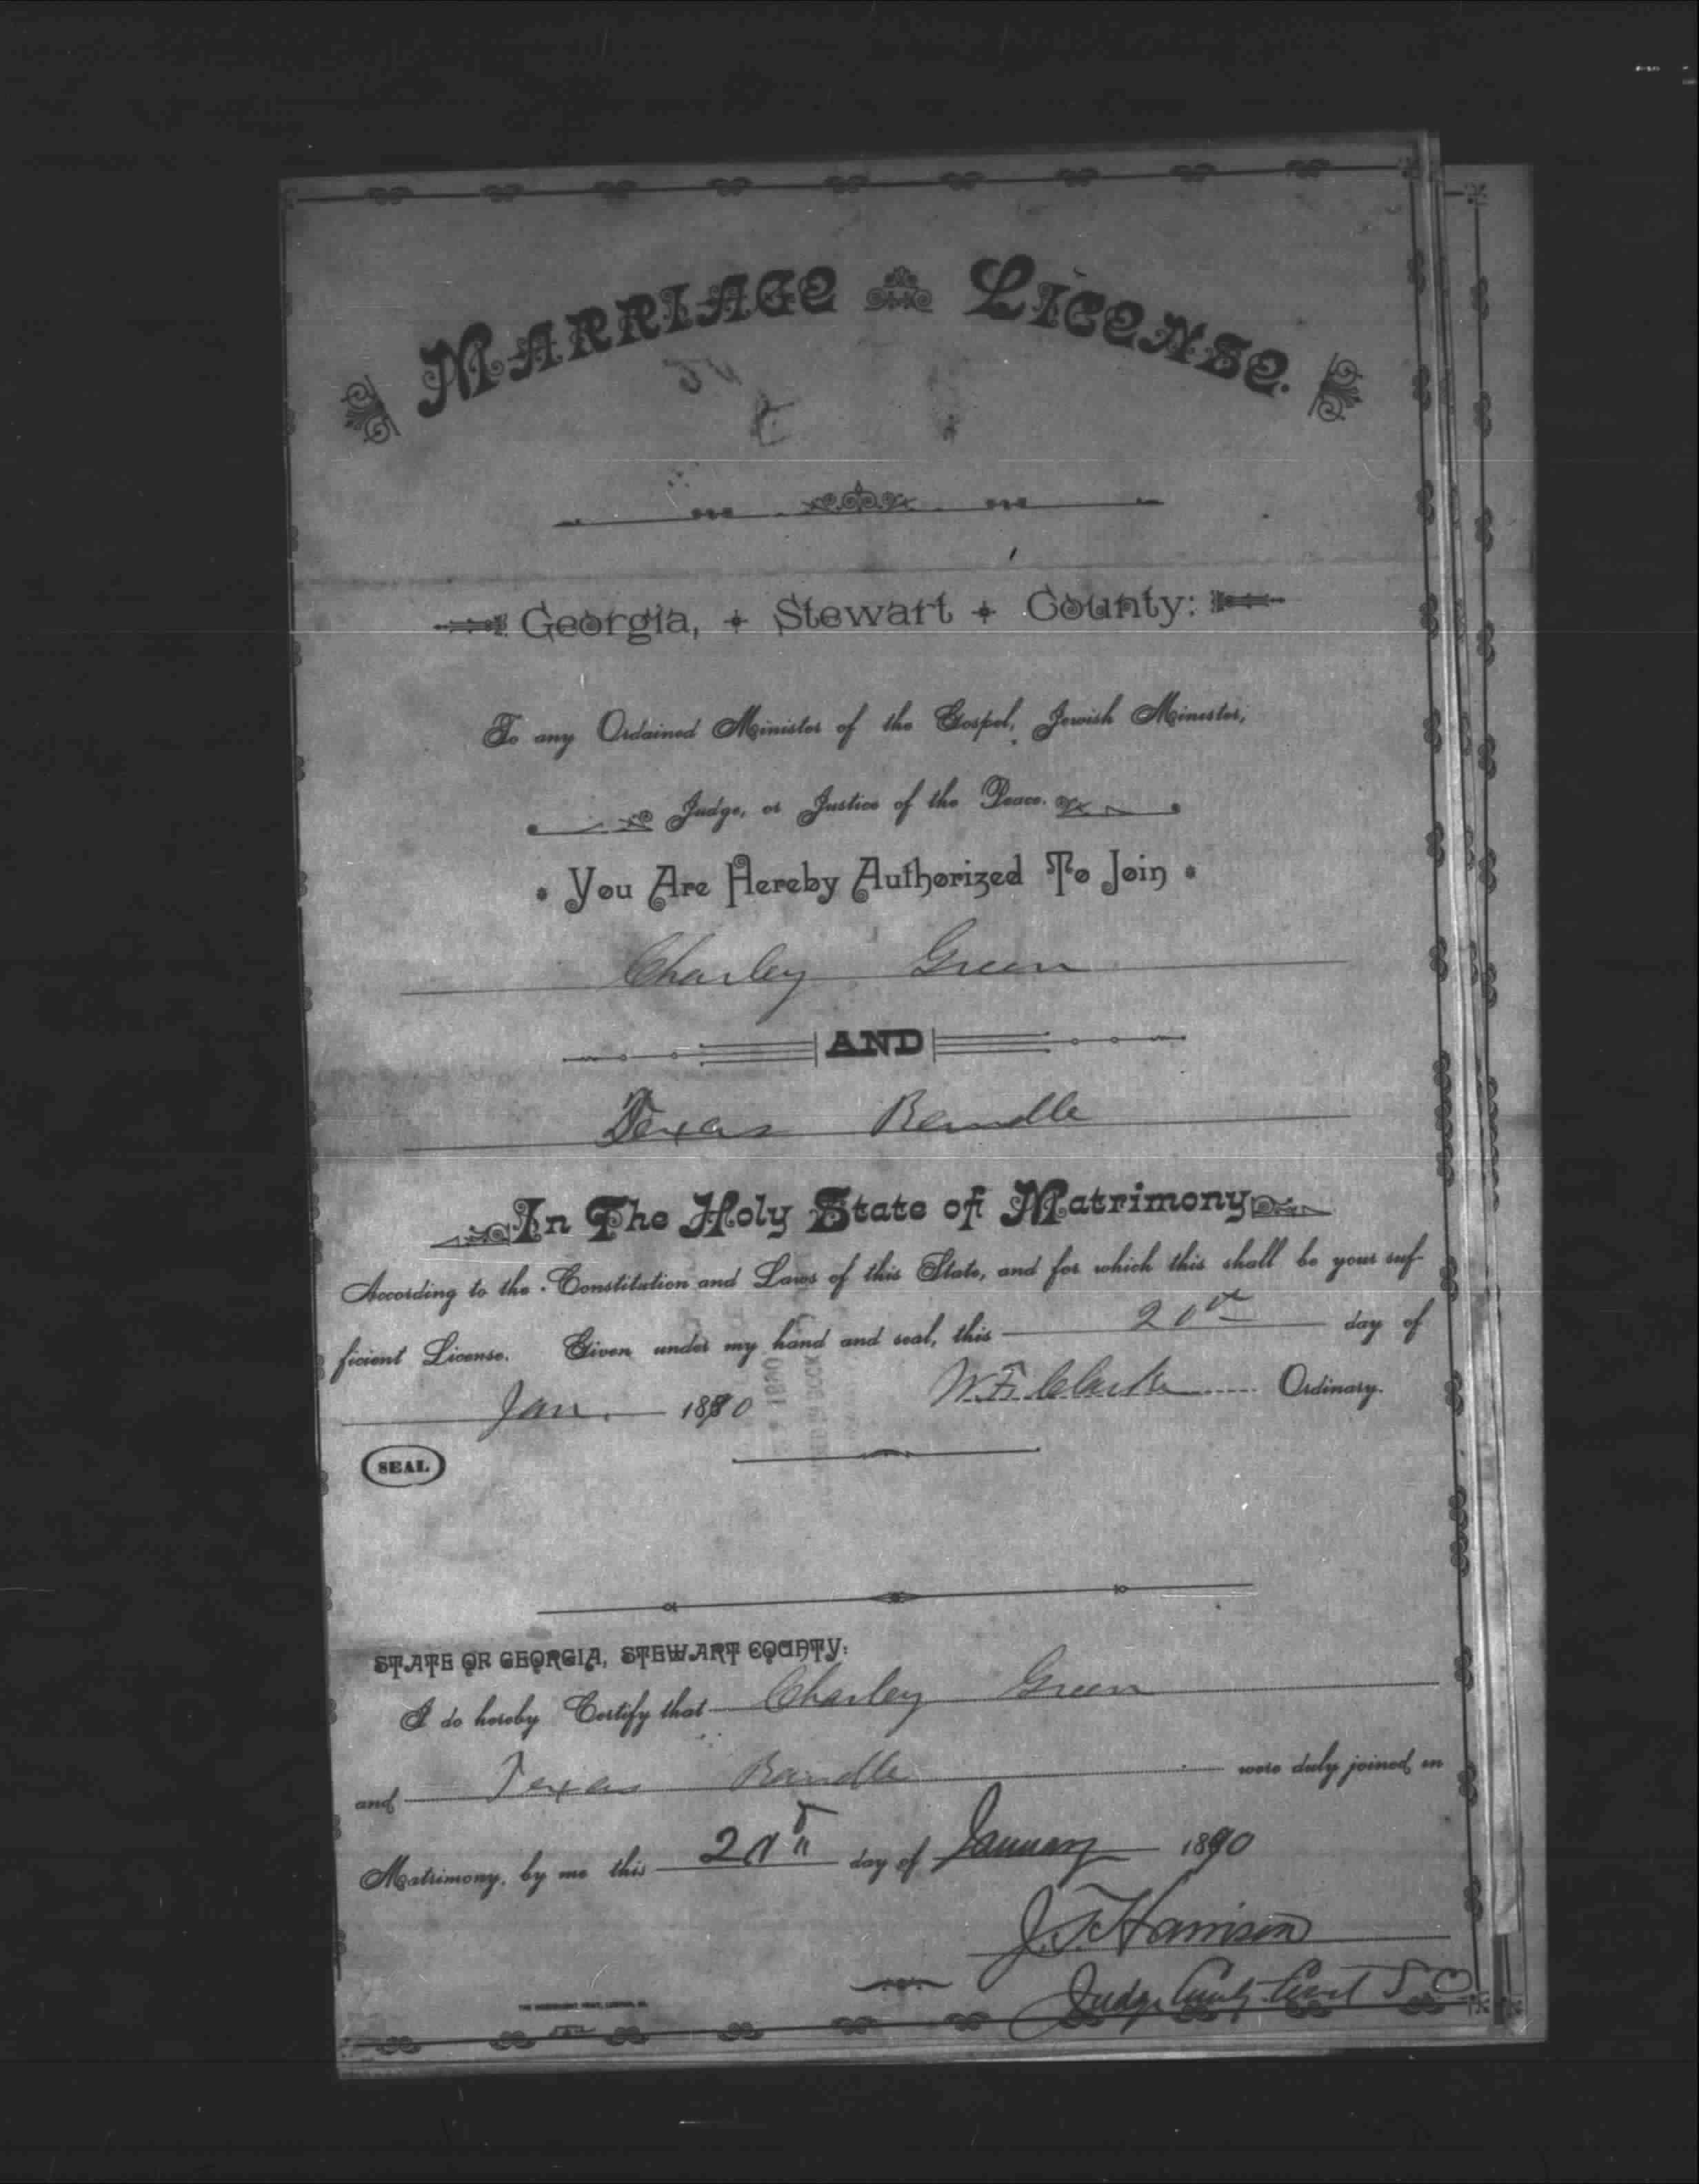 MARRIAGE LICENSE.
Georgia, Stewart County:
To any Ordained Minister of the Gospel, Jewish Minester,
Judge, or Justice of the Peace.
You Are Hereby Authorized To Join
Charley Green
AND
Texas Randle
In The Holy State of Matrimony
According to the Constitution and Laws of this State, and for which this shall be your suf-
ficient License. Given under my hand and seal, this 20th day of
Jan. 1890 W. F. Clarke Ordinary.
SEAL
STATE OF GEORGIA, STEWART COUNTY:
I do hereby Certify that Charley Green
and Texas Randle were duly joined in
Matrimony, by me this 20th day of January 1890
J. T. Harrison
Judge County Court S C